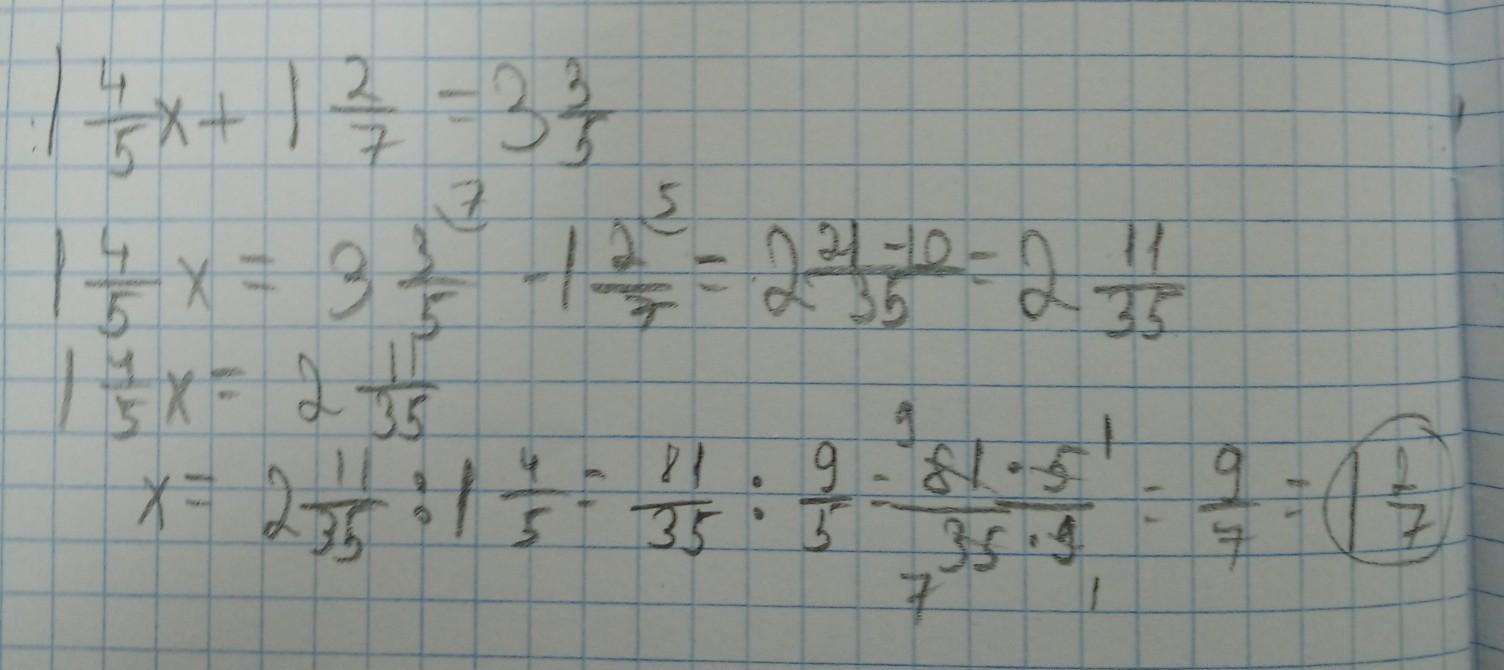 1 4/5 x + 1 2/7 = 3 3/5
1 4/5 x = 3 3/5 (7 - 1 2/7 (5 = 2 21-10/35 = 2 11/35
1 4/5 x = 2 11/35
x = 2 11/35 : 1 4/5 = 81/35 : 9/5 = 9 81 · 5 1 / 7 35 · 9 1 = 9/7 = 1 2/7